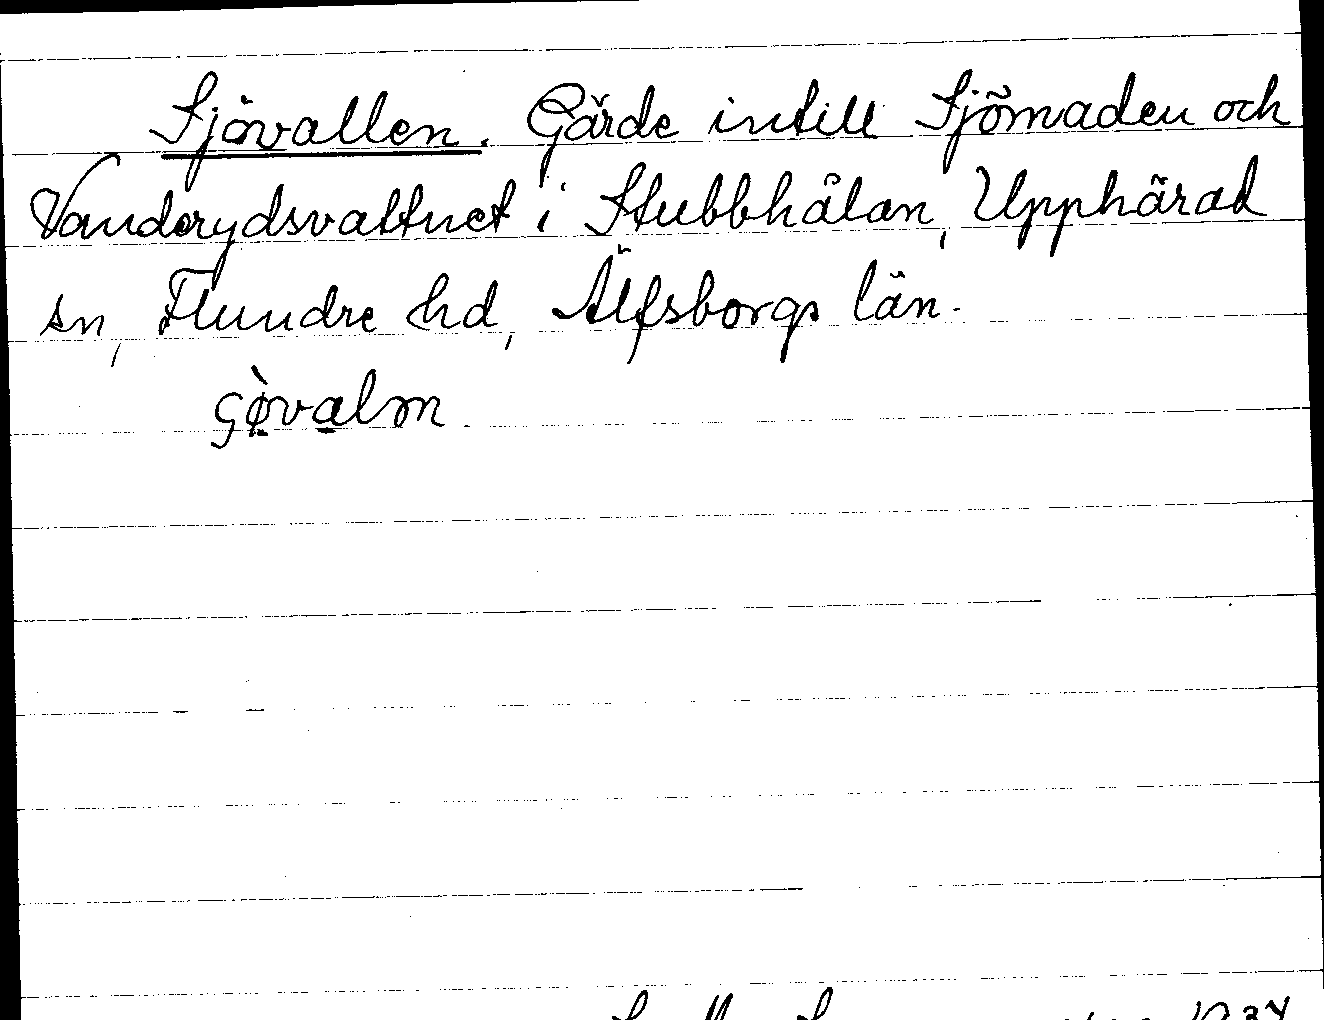 Sjövallen. Gärde intill Sjömaden och
Vanderydsvattnet i Stubbhålan, Upphärad
sn, Flundre hd, Älfsborgs län.